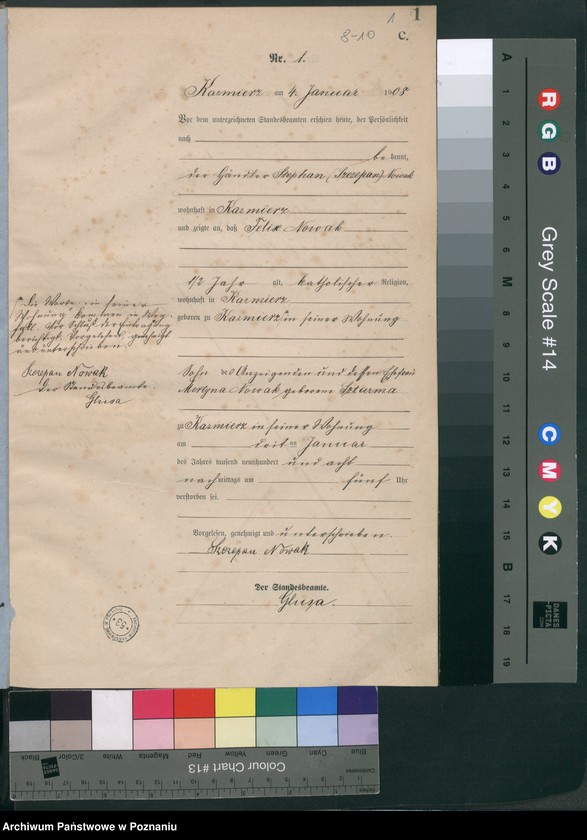 1
1
8-10
C.
Nr. 1.
Kazmierz am 4. Januar 1908
Vor dem unterzeichneten Standesbeamten erschien heute, der Persönlichkeit
nach
be kannt,
der Händler Stephan (Szczepan) Nowak
wohnhaft in Kazmierz
und zeigte an, daß Felix Nowak
1/2 Jahr alt, katholischer Religion,
wohnhaft in Kazmierz
geboren zu Kazmierz in seiner Wohnung
Sohn des Anzeigenden und dessen Ehefrau
Nowak geborene
zu Kazmierz in seiner Wohnung
am dritten Januar
des Jahres tausend neunhundert und acht
nachmittags um fünf Uhr
verstorben sei.
Vorgelesen, genehmigt und unterschrieben.
Szczepan Nowak
Der Standesbeamte.
Die Worte "in seiner
Wohnung"
Vorgelesen, genehmigt
und unterschrieben
Szczepan Nowak
Der Standesbeamte.
53
A 1 2 3 4 5 6 M 8 9 10 11 12 13 14 15 B 17 18 19
R G B
Grey Scale #14
C M Y K
DANES
PICTA
Blue Cyan Green Yellow Red Magenta White 3/Color Black
Colour Chart #13
Archiwum Państwowe w Poznaniu